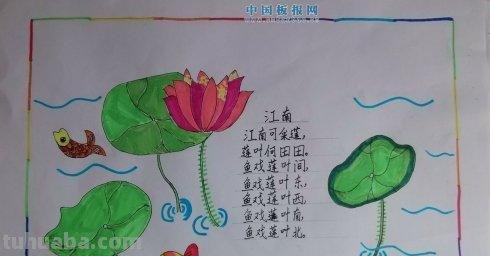 中国板报网
江南
江南可采莲，
莲叶何田田。
鱼戏莲叶间，
鱼戏莲叶东，
鱼戏莲叶西，
鱼戏莲叶南，
鱼戏莲叶北。
tuhuaba.com